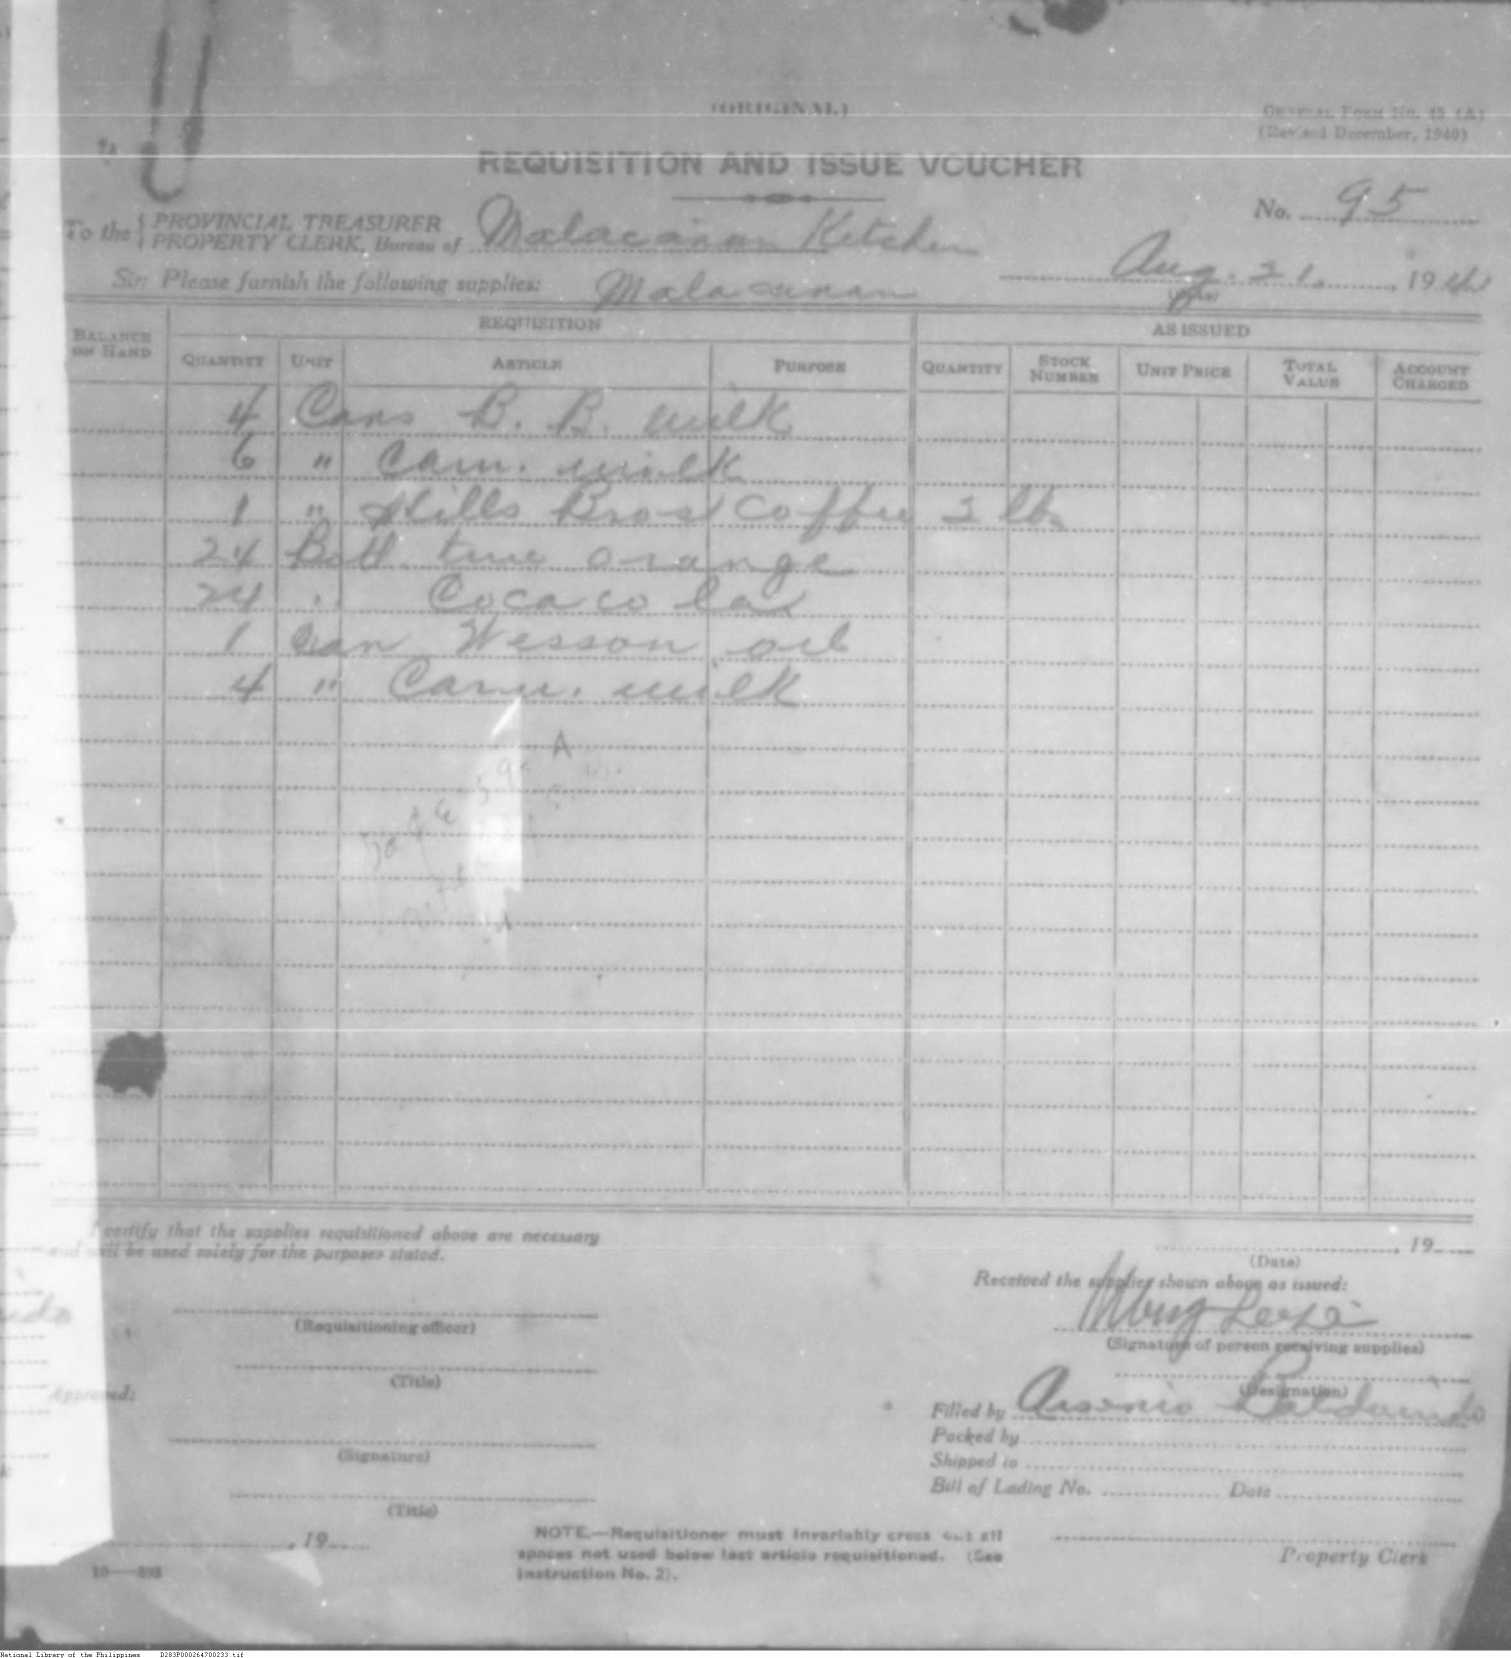 (ORIGINAL)
GENERAL FORM No. 45 (A)
(Revised December, 1940)
REQUISITION AND ISSUE VOUCHER
No. 95
To the { PROVINCIAL TREASURER
PROPERTY CLERK, Bureau of Malacanan Kitchen
Aug. 21, 19
(Date)
Sir: Please furnish the following supplies: Malacanan
BALANCE ON HAND REQUISITION AS ISSUED
QUANTITY UNIT ARTICLE PURPOSE QUANTITY STOCK NUMBER UNIT PRICE TOTAL VALUE ACCOUNT CHARGED
4 Cans B. B. milk
6 " Carn. milk
1 " Hills Bros coffee 2 lb.
24 Bott. true orange
24 " Coca cola
1 can Wesson oil
4 " Carn. milk
A
I certify that the supplies requisitioned above are necessary
and will be used solely for the purposes stated.
, 19
(Date)
Received the supplies shown above as issued:
(Requisitioning officer)
(Signature of person receiving supplies)
(Title)
(Designation)
Approved:
Filled by Arsenio Balduindo
Packed by
(Signature)
Shipped to
Bill of Lading No. Date
(Title)
, 19
NOTE.—Requisitioner must invariably cross out all
spaces not used below last article requisitioned. (See
Instruction No. 2).
Property Clerk
National Library of the Philippines D283P000264700233.tif